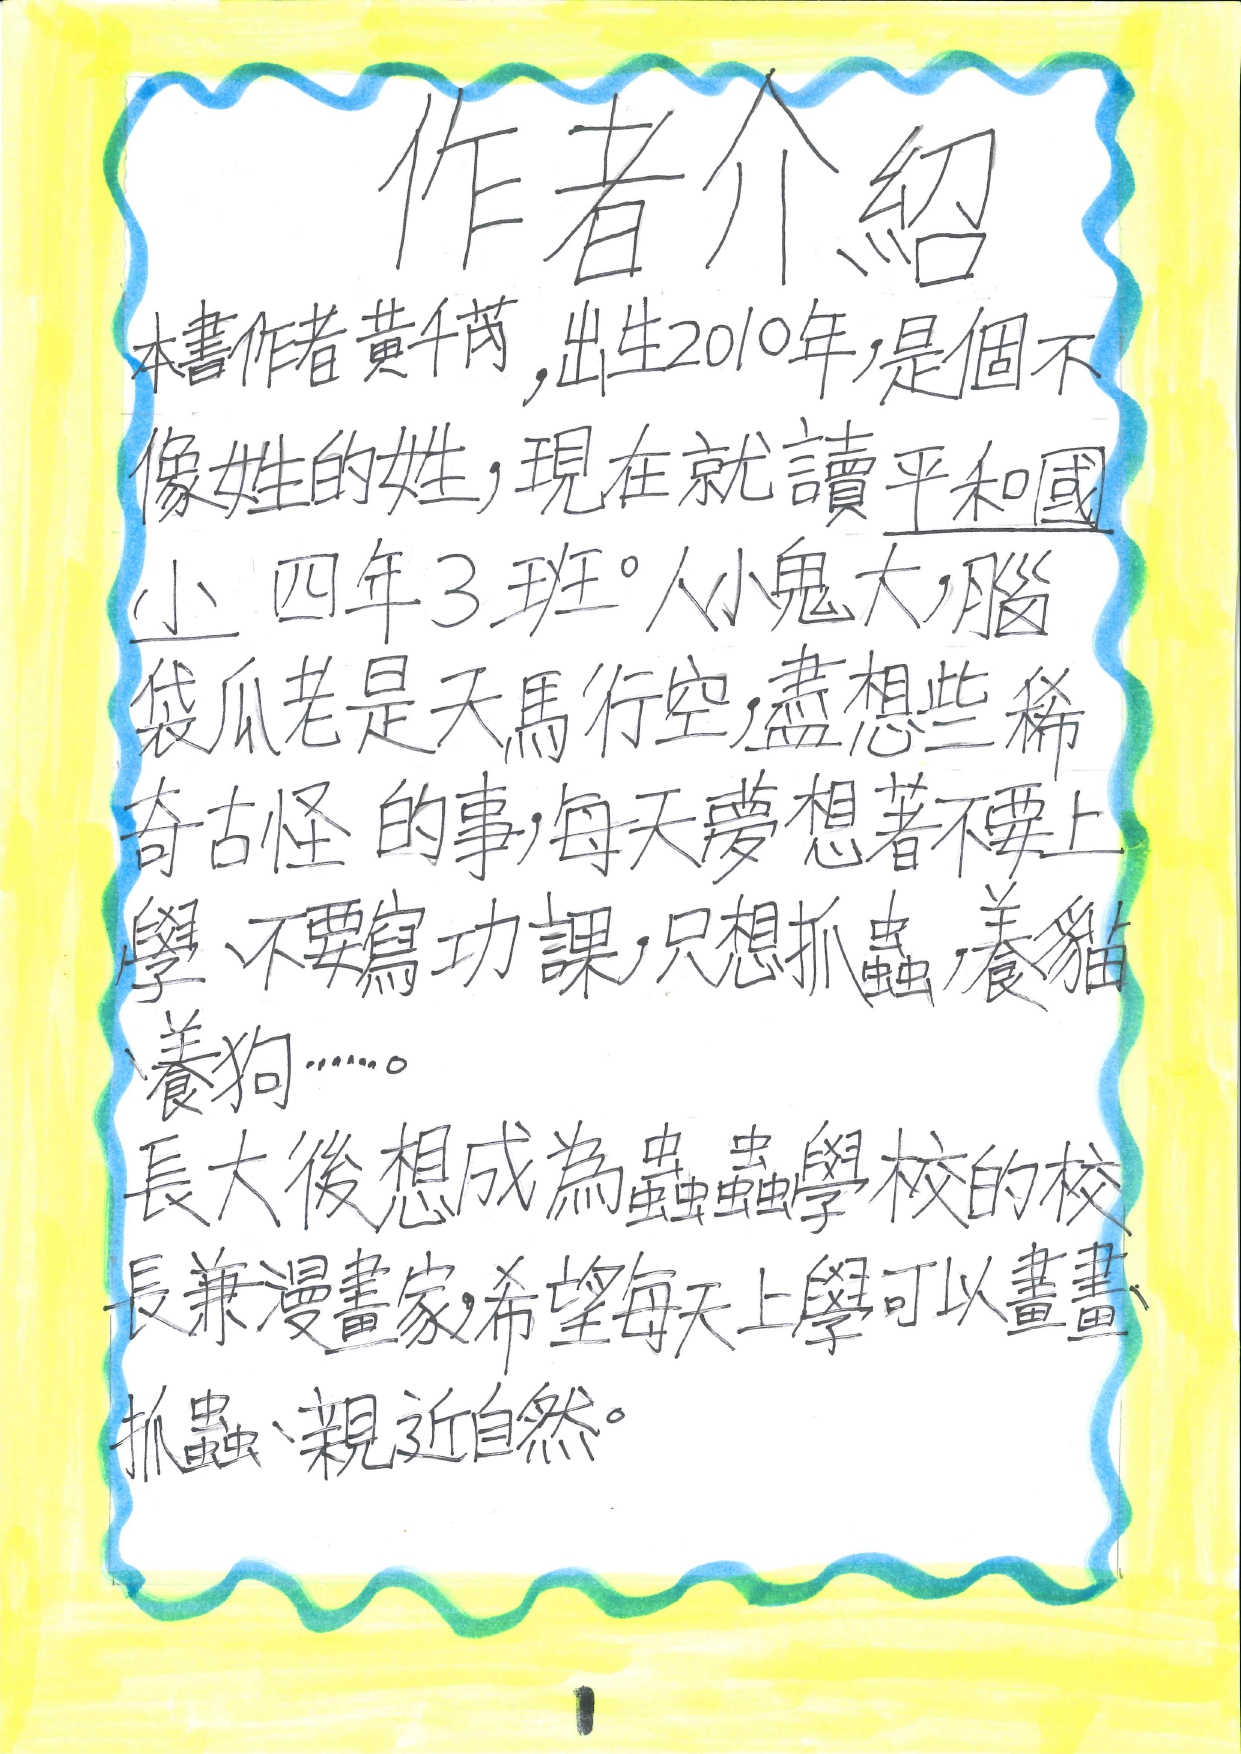 作者介紹
本書作者黃千芮,出生2010年,是個不
像姓的姓,現在就讀平和國
小 四年3班。人小鬼大,腦
袋瓜老是天馬行空,盡想些稀
奇古怪 的事,每天夢想著不要上
學、不要寫功課,只想抓蟲,養貓
、養狗……。
長大後想成為蟲蟲學校的校
長兼漫畫家,希望每天上學可以畫畫、
抓蟲、親近自然。
1